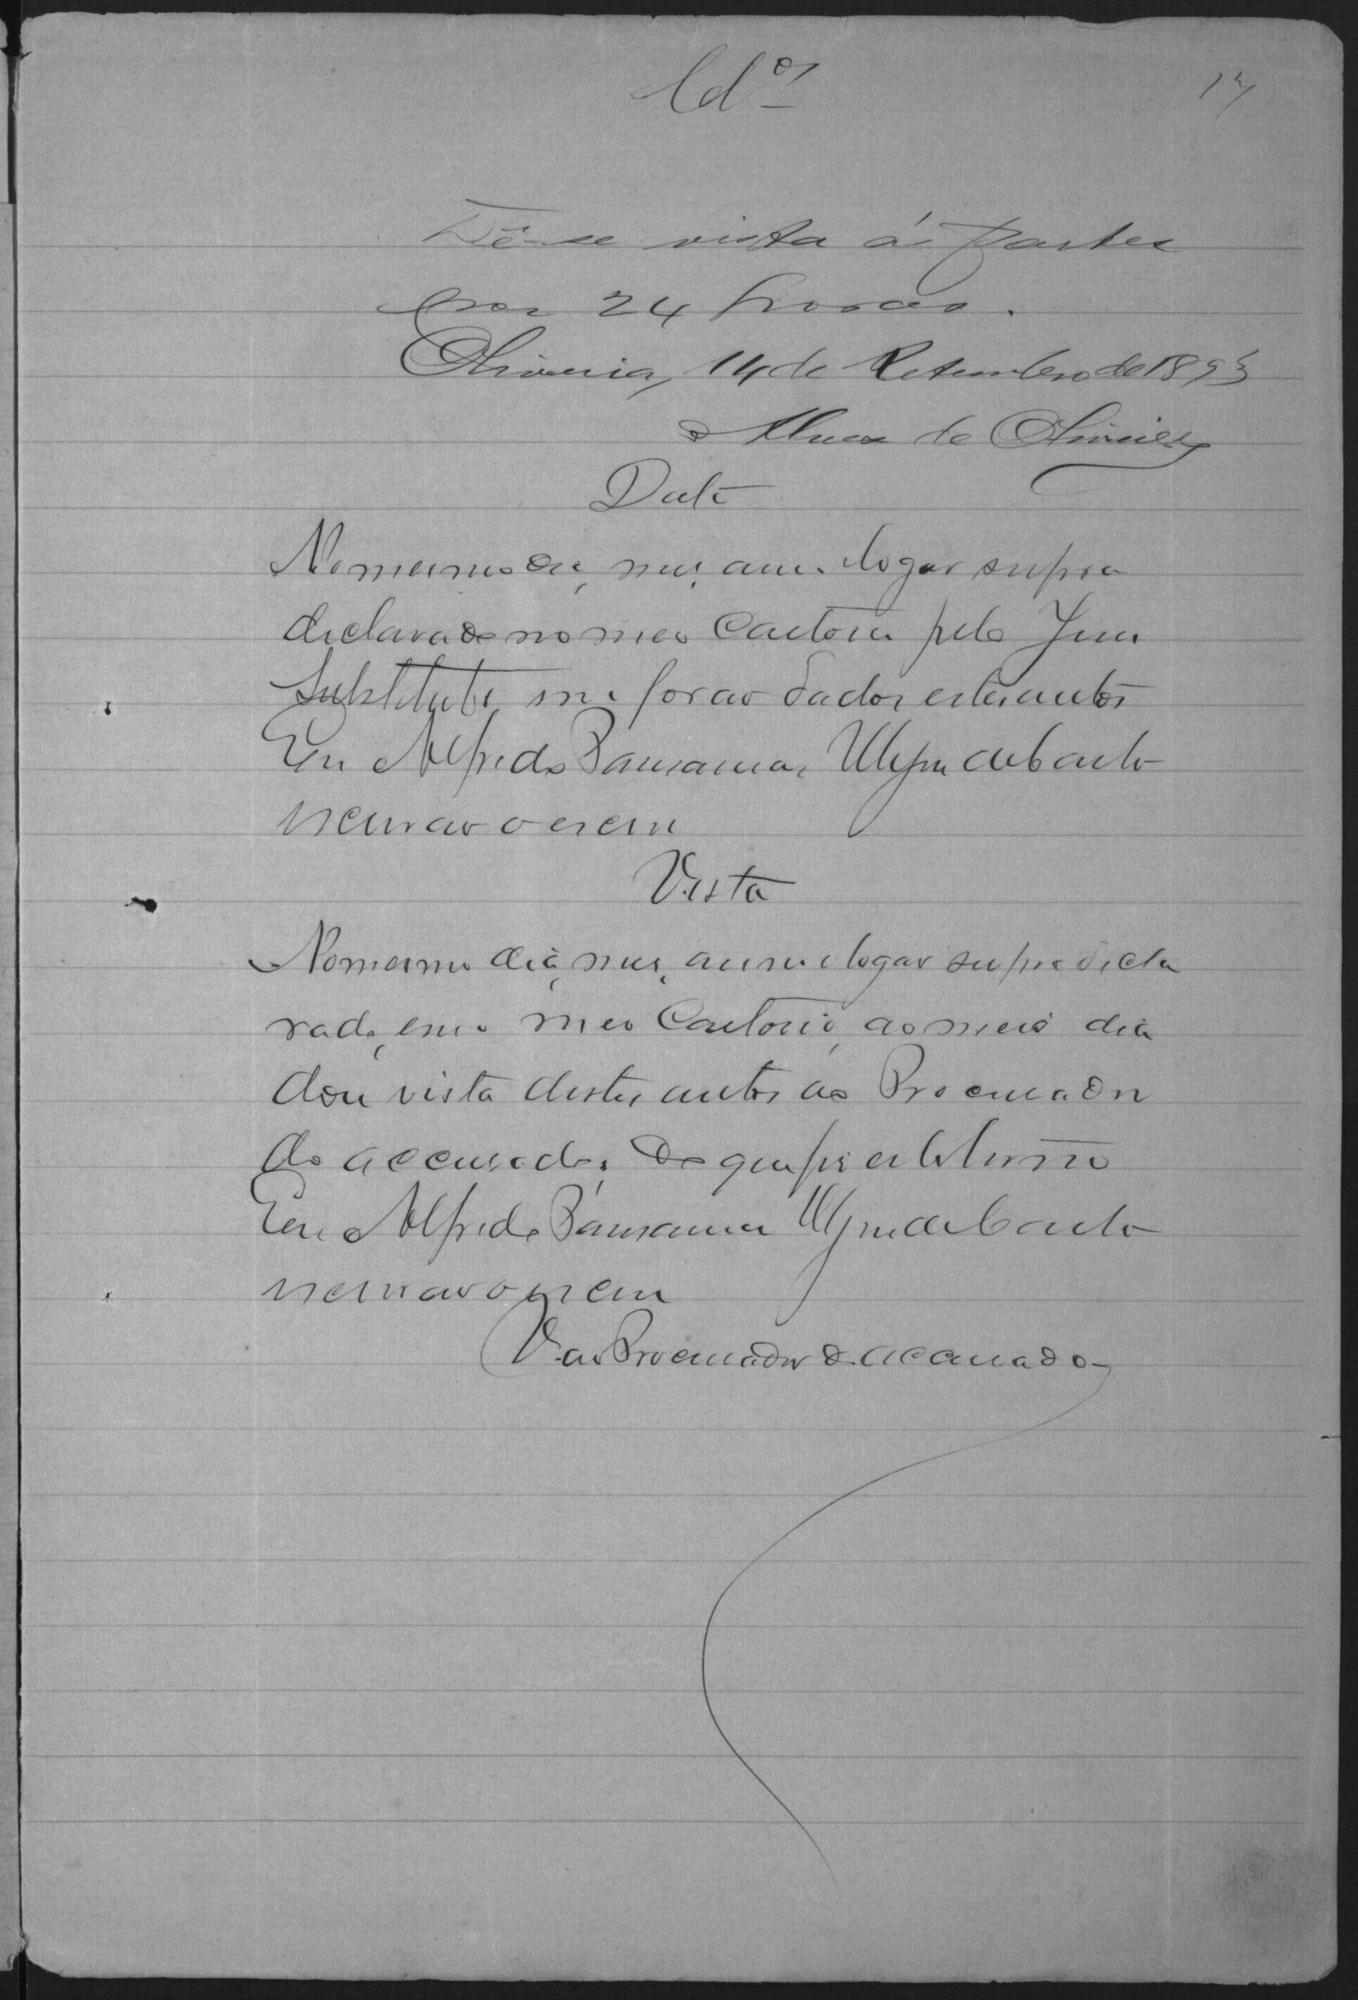 Cl.ᵒˢ
17
Dê-se vista ás partes
por 24 horas.
Oliveira, 14 de Setembro de 1893
de Oliveira
Data
No mesmo dia, mez, anno logar supra
declarado no meo Cartorio pelo Juiz
Substituto me forão dados estes autos
Eu Alfredo
escrivão o escrevi
Vista
No mesmo dia, mez, anno e logar supra decla
rado, em meo Cartorio, ao meio dia
dou vista destes autos ao Procurador
do accusado, do que fiz este termo
Eu Alfredo
escrivão o escrevi
V. ao Procurador do accusado